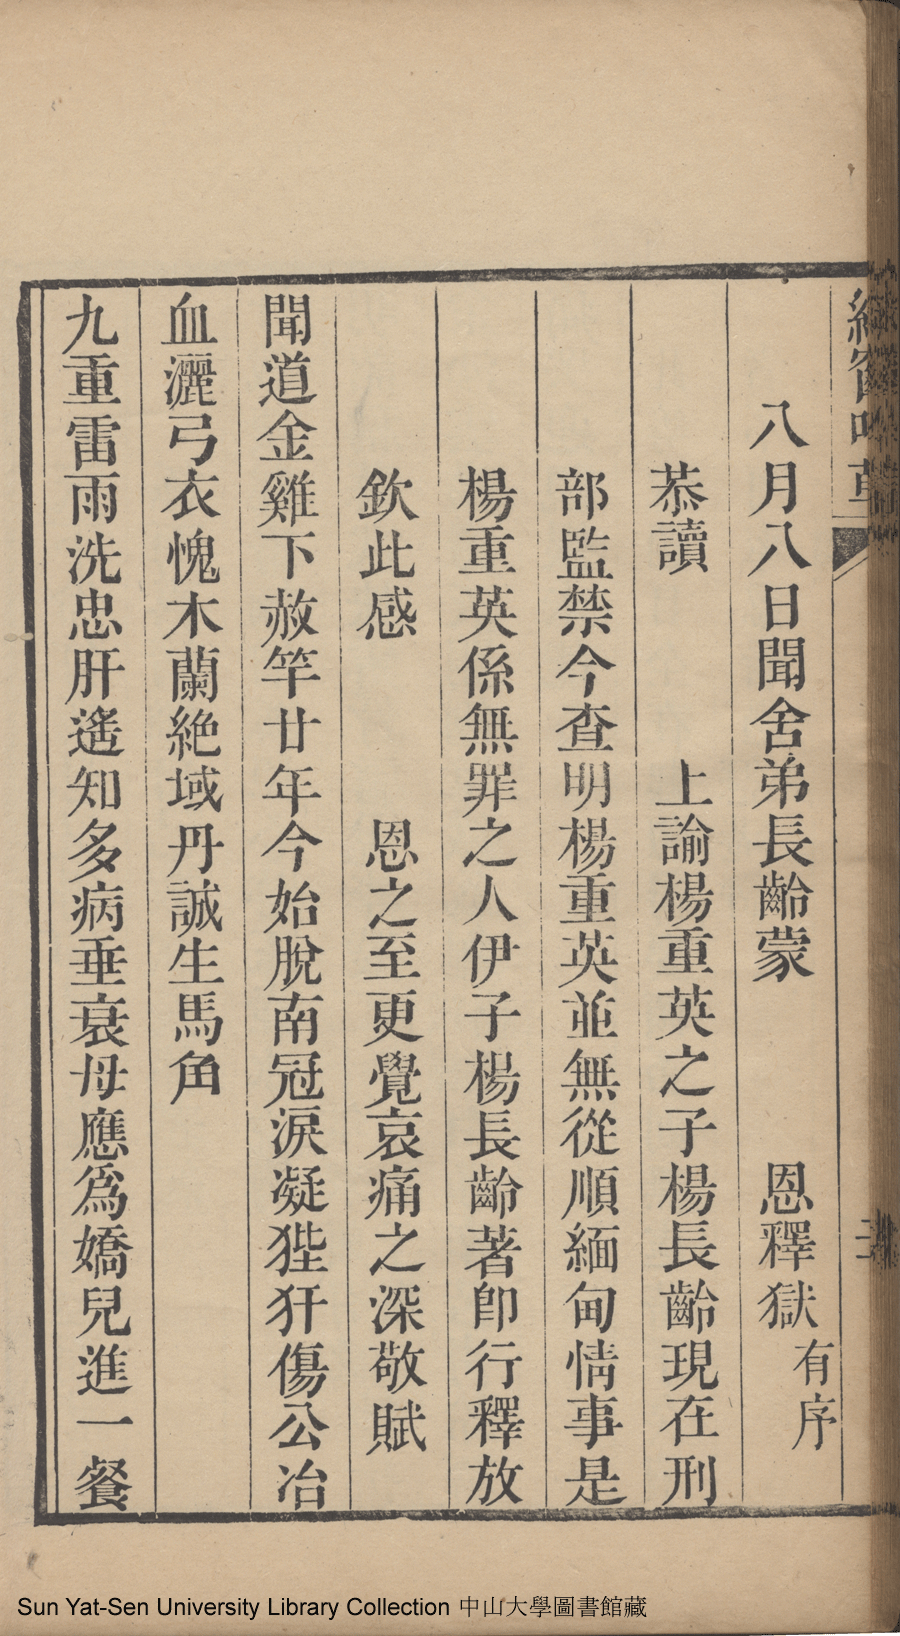 八月八日聞舍弟長齡蒙 恩釋獄有序
恭讀 上諭楊重英之子楊長齡現在刑
部監禁今查明楊重英並無從順緬甸情事是
楊重英係無罪之人伊子楊長齡著卽行釋放
欽此感 恩之至更覺哀痛之深敬賦
聞道金雞下赦竿廿年今始脫南冠淚凝狴犴傷公冶
血灑弓衣愧木蘭絕域丹誠生馬角
九重雷雨洗忠肝遙知多病垂衰母應爲嬌兒進一餐
Sun Yat-Sen University Library Collection 中山大學圖書館藏